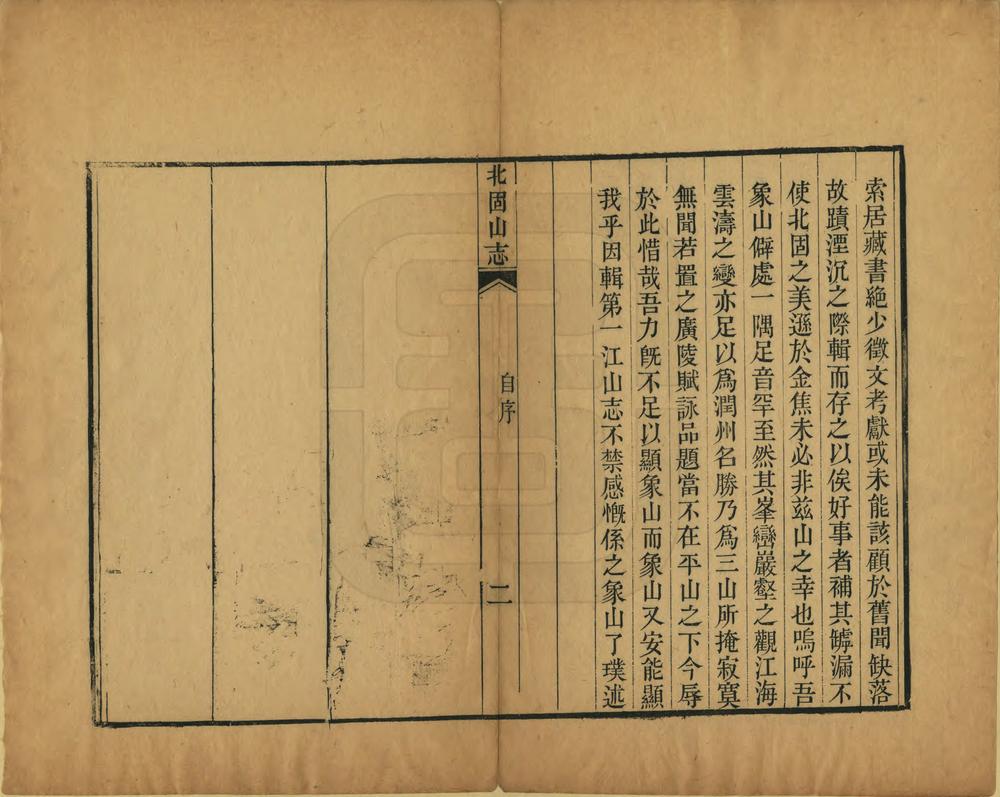 索居藏書絶少徵文考獻或未能該顧於舊聞缺落
故蹟湮沉之際輯而存之以俟好事者補其罅漏不
使北固之美遜於金焦未必非兹山之幸也嗚呼吾
象山僻處一隅足音罕至然其峯巒巖壑之觀江海
雲濤之變亦足以爲潤州名勝乃爲三山所掩寂寞
無聞若置之廣陵賦詠品題當不在平山之下今辱
於此惜哉吾力旣不足以顯象山而象山又安能顯
我乎因輯第一江山志不禁感慨係之象山了璞述
北固山志
自序
二